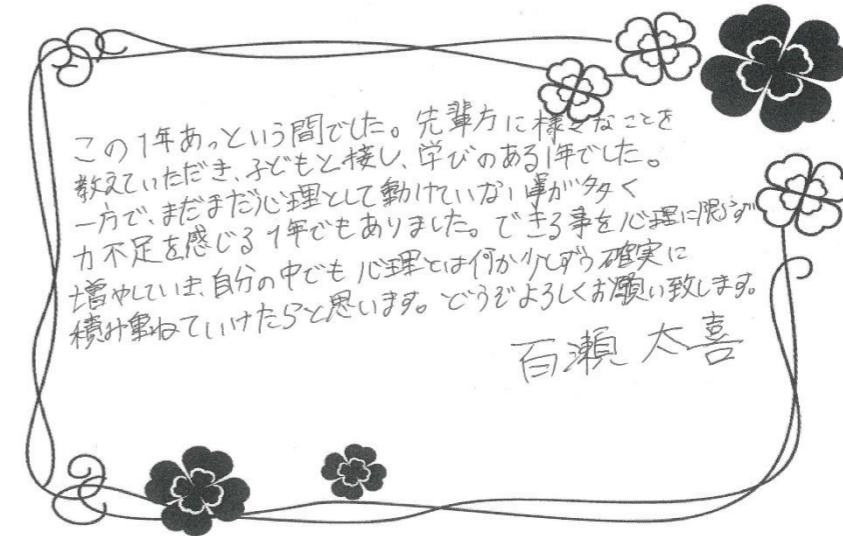 この1年あっという間でした。先輩方に様々なことを
教えていただき、子どもと接し、学びのある1年でした。
一方で、まだまだ心理として動けていない事が多く
力不足を感じる1年でもありました。できる事を心理に限らず
増やしていき、自分の中でも心理とは何か少しずつ確実に
積み重ねていけたらと思います。どうぞよろしくお願い致します。
百瀬 太喜